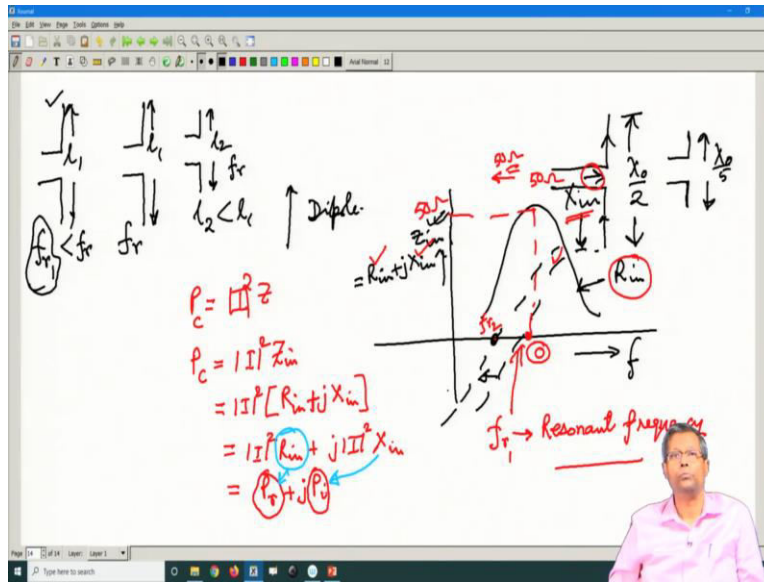 Journal
File Edit View Page Tools Options Help
Arial Normal 12
l₁
l₁
l₂
fr
fr₁ < fr
fr
l₂ < l₁
Dipole
P_c = |I|² Z
P_c = |I|² Z_in
= |I|² [R_in + j X_in]
= |I|² R_in + j |I|² X_in
= P_r + j P_i
50Ω
50Ω
50Ω
X_in
λ₀/2
λ₀/5
Z_in
= R_in + j X_in
R_in
fr₂
0
f
fr₁ → Resonant frequency
Page 14 of 14 Layer: Layer 1
Type here to search